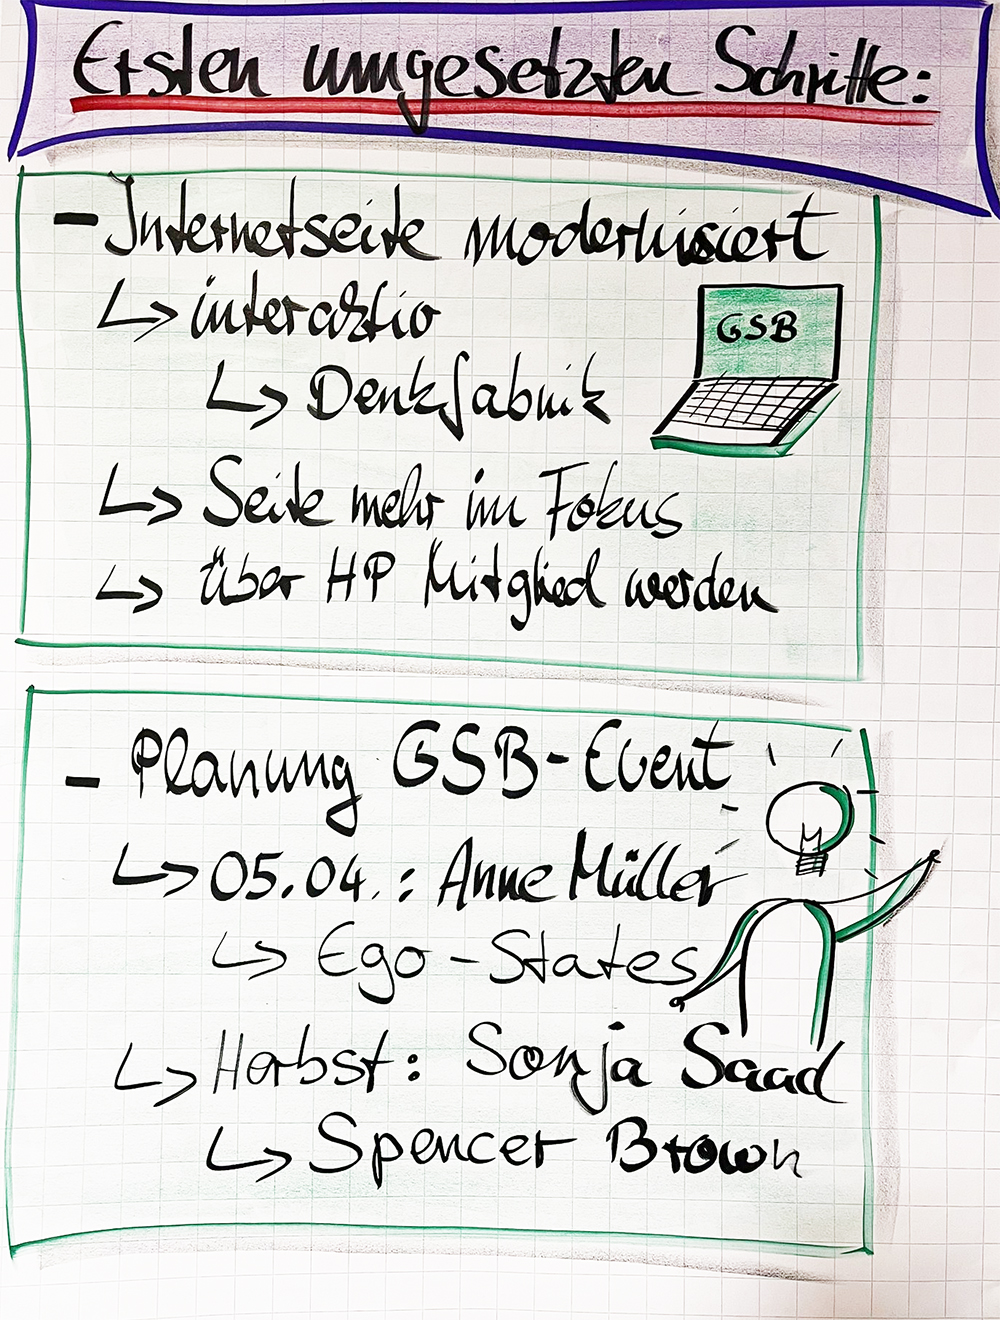 Ersten umgesetzten Schritte:
- Internetseite modernisiert
↳ interaktiv
GSB
↳ Denkfabrik
↳ Seite mehr im Fokus
↳ über HP Mitglied werden
- Planung GSB-Event
↳ 05.04.: Anne Müller
↳ Ego-States
↳ Herbst: Sonja Saad
↳ Spencer Brown